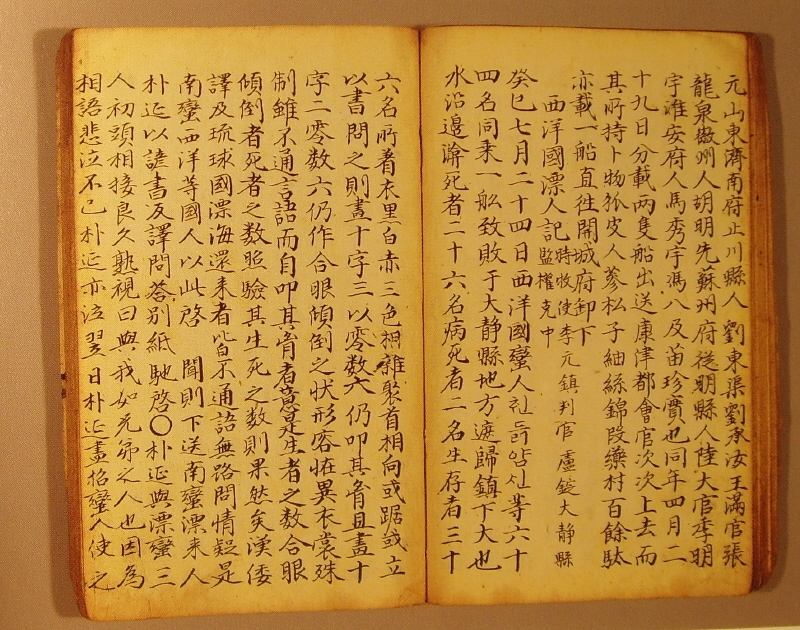 元山東濟南府止川縣人劉東渠劉承汝王滿官張
龍泉徽州人胡明先蘇州府從明縣人陸大官季明
宇淮安府人馬秀宇馮八及苗珍實也同年四月二
十九日分載两隻船出送康津都會官次次上去而
其所持卜物狐皮人蔘松子紬絲錦段藥村百餘駄
亦載一船直徃開城府卸下
西洋國漂人記
時牧使李元鎮判官盧錠大静縣
監權克中
癸巳七月二十四日西洋國蠻人헌듥얌신等六十
四名同乘一舩致敗于大静縣地方遮歸鎮下大也
水沿邊渰死者二十六名病死者二名生存者三十
六名所着衣黑白赤三色相雜聚首相向或踞或立
以書問之則畫十字三以零数六仍叩其脅且畫十
字二零数六仍作合眼傾倒之状形容恠異衣裳殊
制雖不通言語而自叩其脅者意是生者之数合眼
傾倒者死者之数照驗其生死之数則果然矣漢倭
譯及琉球國漂海還来者皆不通語無路問情疑是
南蠻西洋等國人以此啓 聞則下送南蠻漂来人
朴延以諺書反譯問荅別紙馳啓〇朴延與漂蠻三
人初頭相接良久熟視曰與我如兄弟之人也因為
相語悲泣不已朴延亦泣翌日朴延盡招蠻人使之